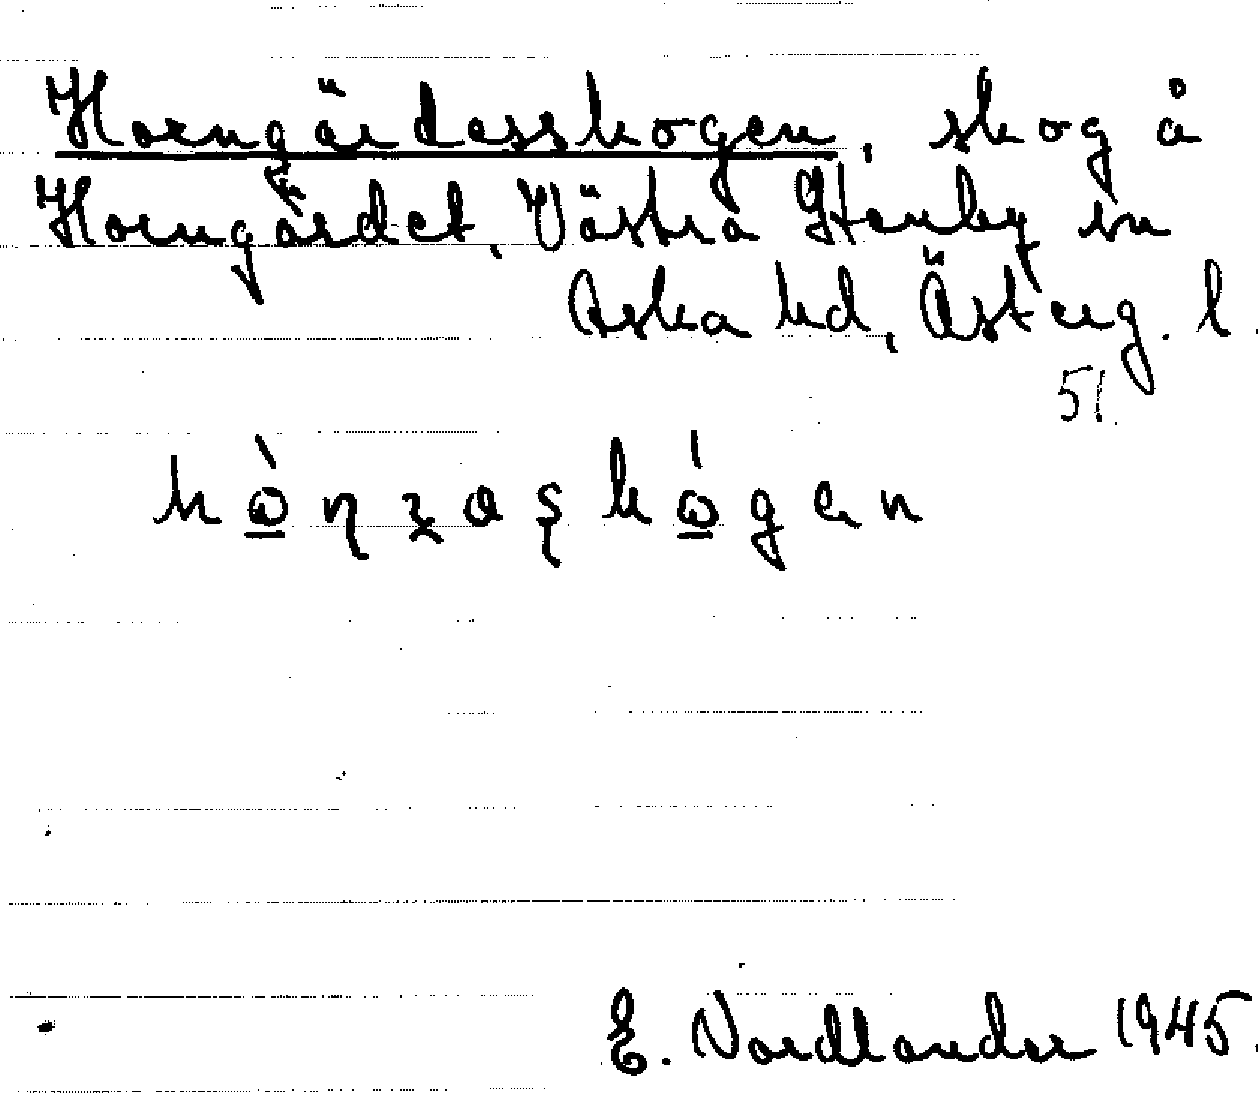 Horngärdesskogen, skog å
Horngärdet, Västra Stenby sn
Aska hd, Österg. l.
51.
E. Nordlander 1945.